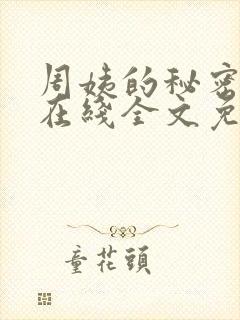 周姨的秘密
在线全文免
童花頭